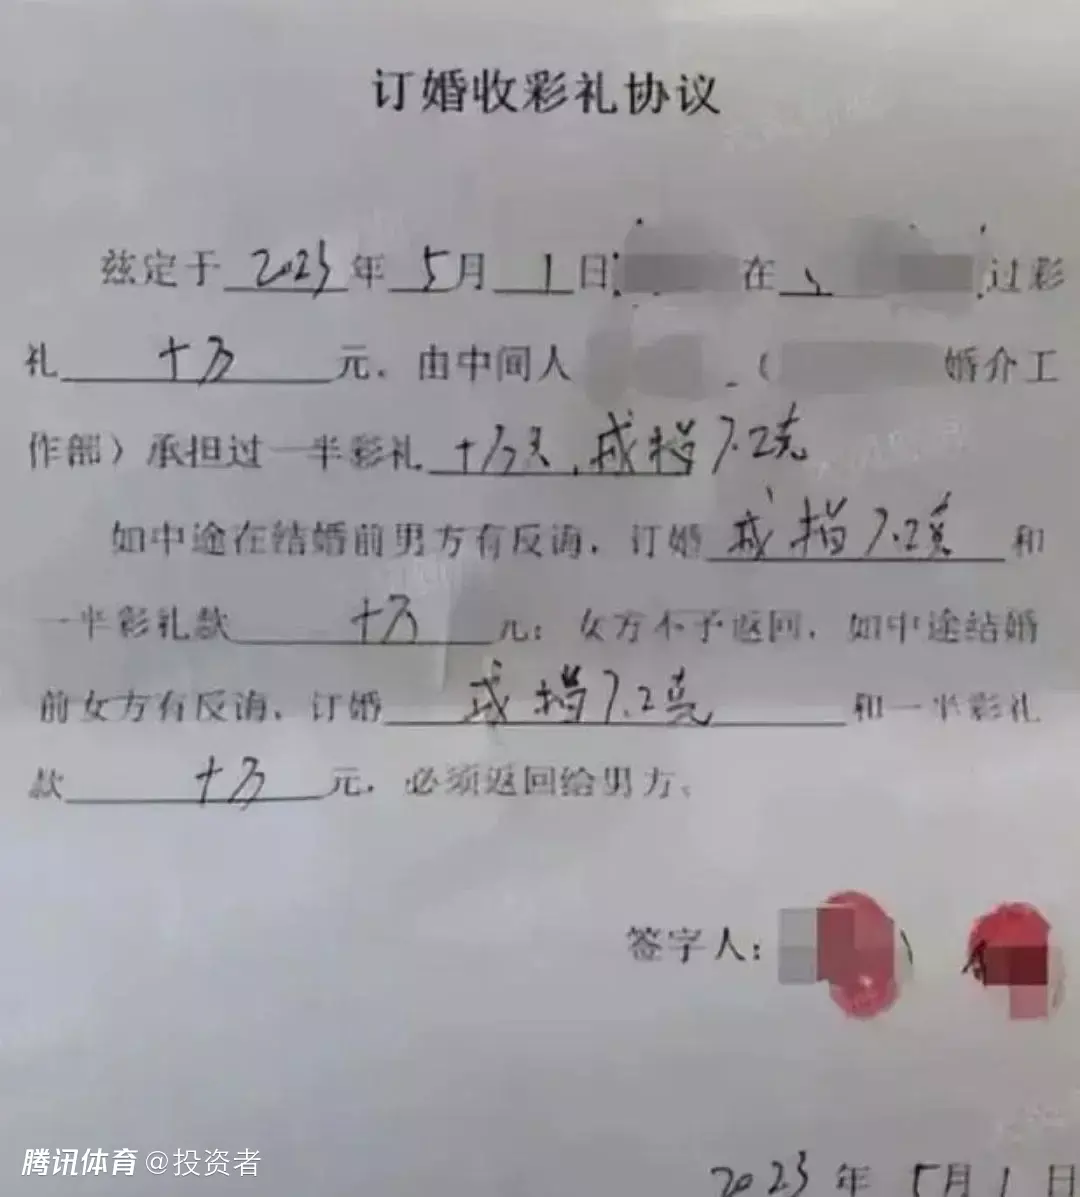 订婚收彩礼协议
兹定于 2023 年 5 月 1 日 在 过彩
礼 十万 元，由中间人 （ 婚介工
作部）承担过一半彩礼 十万元，戒指7.2克
如中途在结婚前男方有反诲，订婚 戒指7.2克 和
一半彩礼款 十万 元；女方不予返回，如中途结婚
前女方有反诲，订婚 戒指7.2克 和一半彩礼
款 十万 元，必须返回给男方。
签字人：
2023 年 5月 1 日
腾讯体育 @投资者